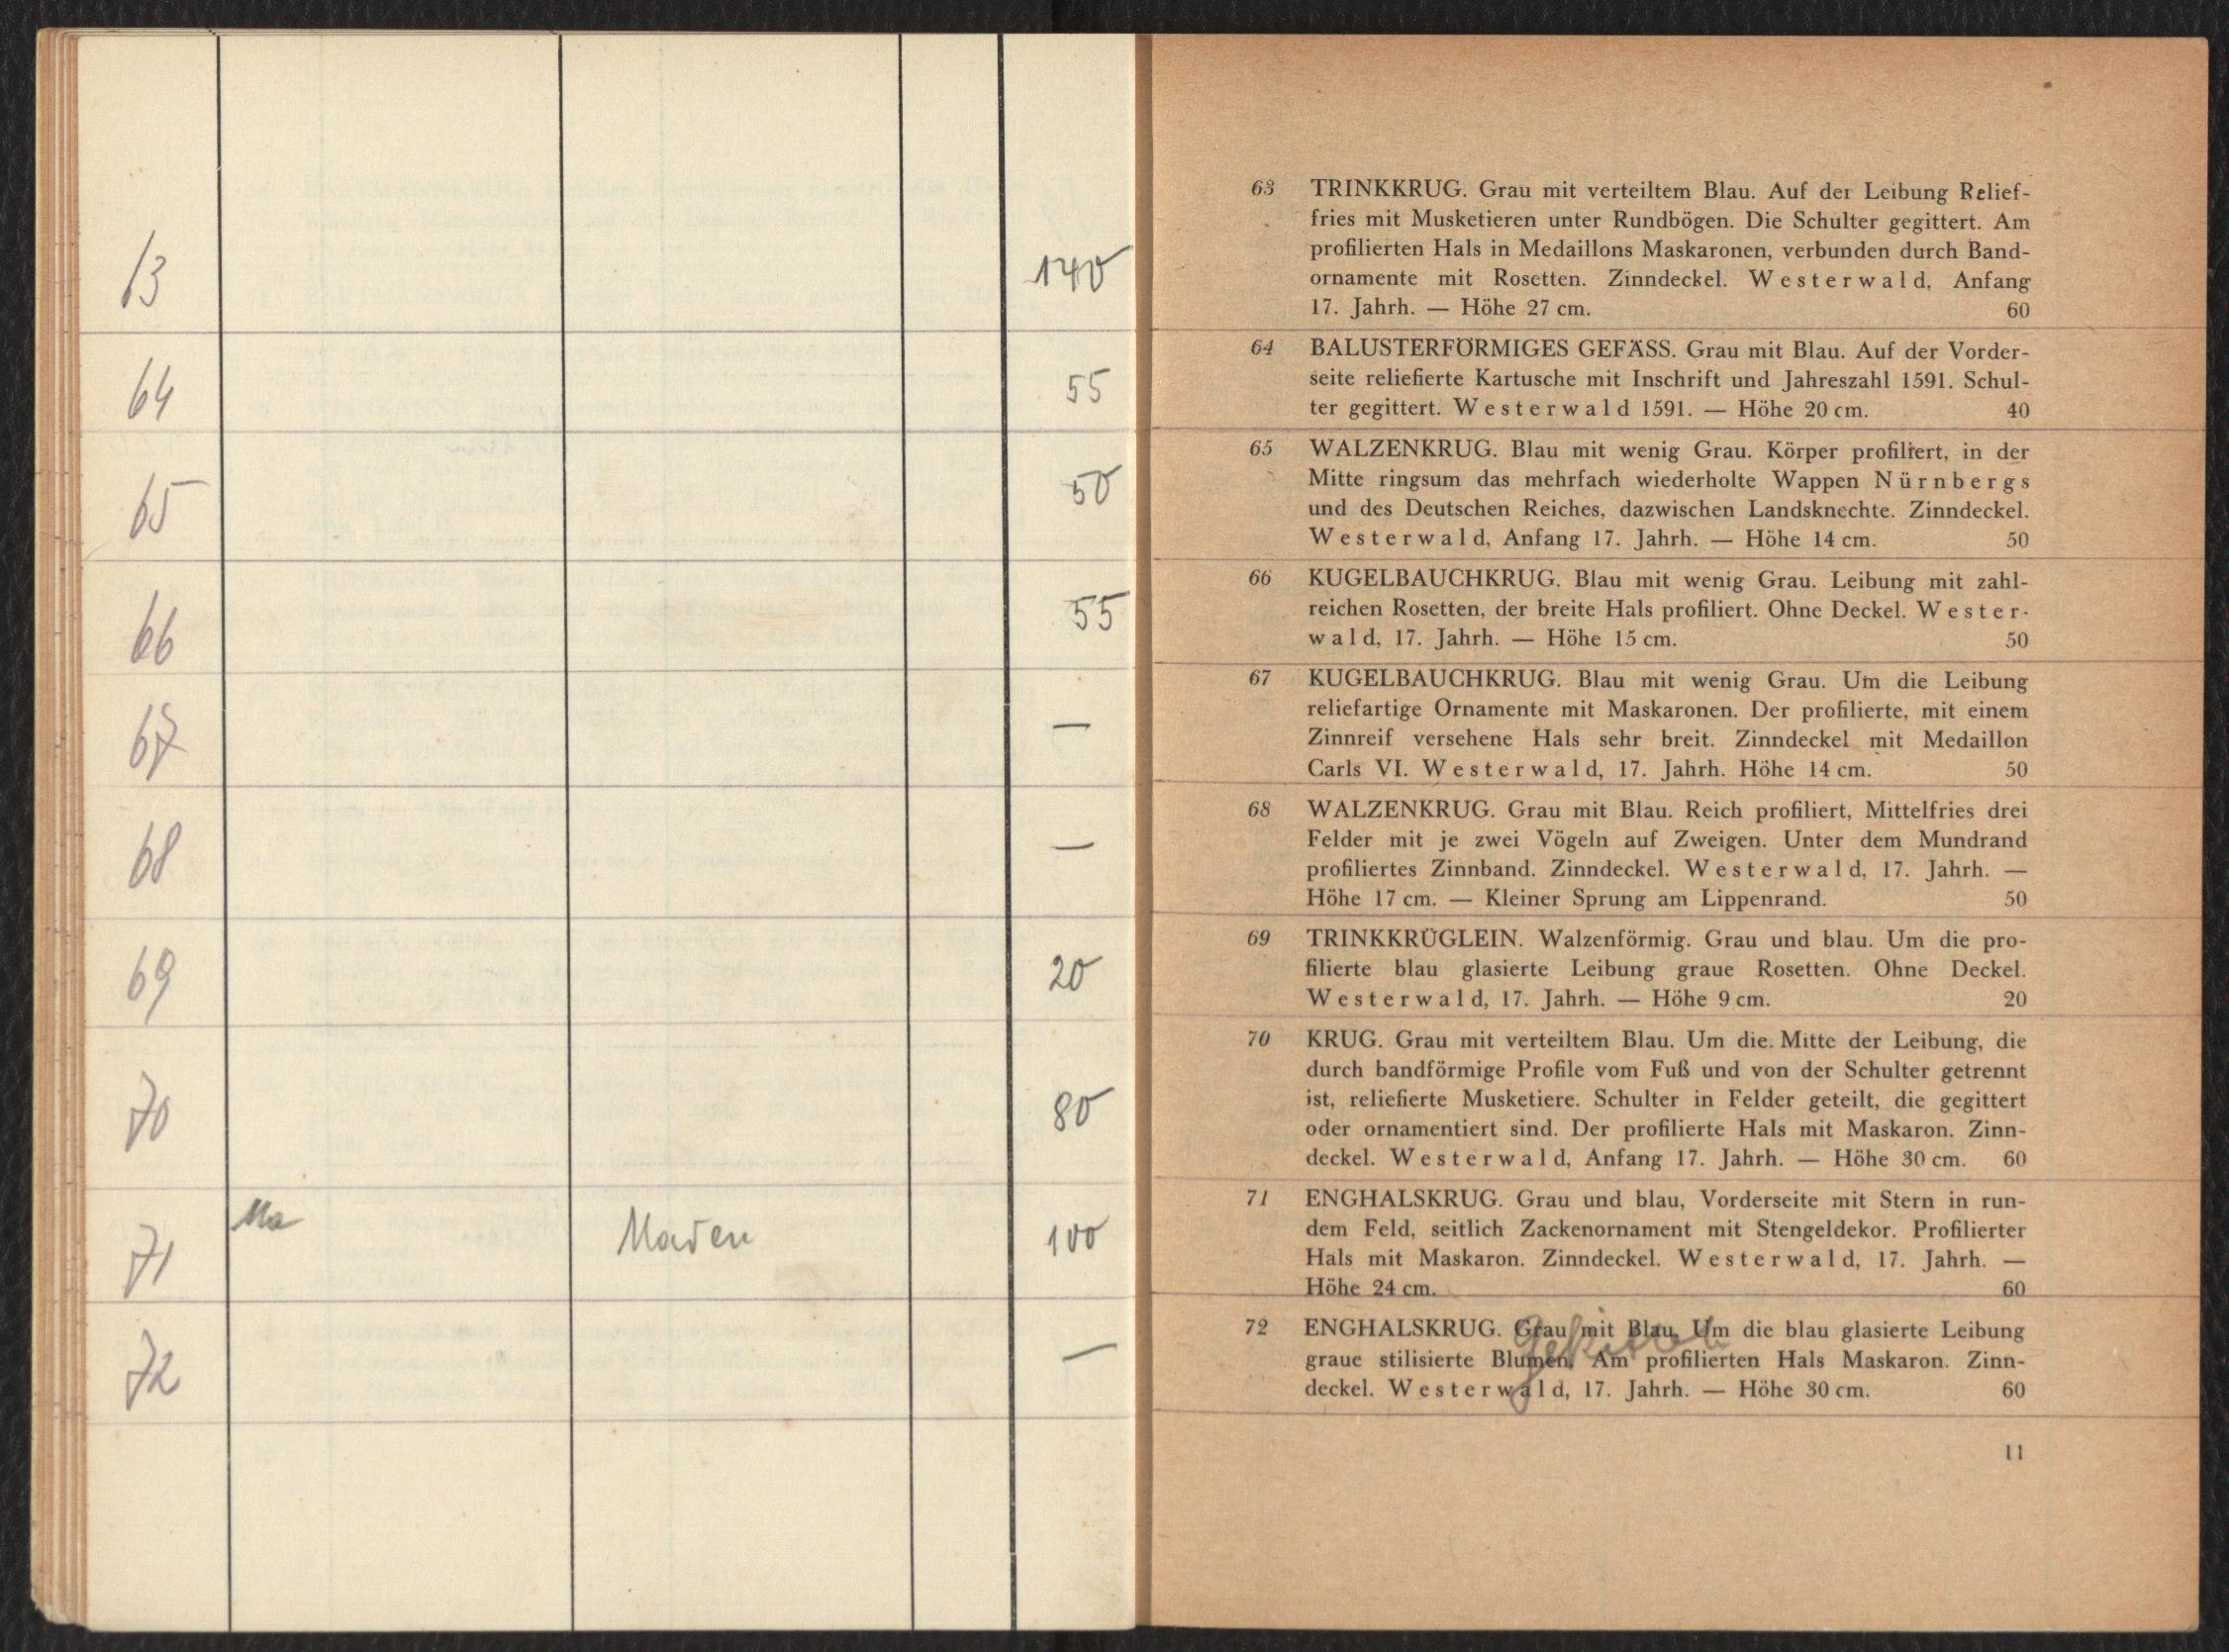 63 140
64 55
65 50
66 55
67 —
68 —
69 20
70 80
71 Ma 100
72 —
63 TRINKKRUG. Grau mit verteiltem Blau. Auf der Leibung Relief-
fries mit Musketieren unter Rundbögen. Die Schulter gegittert. Am
profilierten Hals in Medaillons Maskaronen, verbunden durch Band-
ornamente mit Rosetten. Zinndeckel. Westerwald, Anfang
17. Jahrh. — Höhe 27 cm. 60
64 BALUSTERFÖRMIGES GEFÄSS. Grau mit Blau. Auf der Vorder-
seite reliefierte Kartusche mit Inschrift und Jahreszahl 1591. Schul-
ter gegittert. Westerwald 1591. — Höhe 20 cm. 40
65 WALZENKRUG. Blau mit wenig Grau. Körper profiliert, in der
Mitte ringsum das mehrfach wiederholte Wappen Nürnbergs
und des Deutschen Reiches, dazwischen Landsknechte. Zinndeckel.
Westerwald, Anfang 17. Jahrh. — Höhe 14 cm. 50
66 KUGELBAUCHKRUG. Blau mit wenig Grau. Leibung mit zahl-
reichen Rosetten, der breite Hals profiliert. Ohne Deckel. Wester-
wald, 17. Jahrh. — Höhe 15 cm. 50
67 KUGELBAUCHKRUG. Blau mit wenig Grau. Um die Leibung
reliefartige Ornamente mit Maskaronen. Der profilierte, mit einem
Zinnreif versehene Hals sehr breit. Zinndeckel mit Medaillon
Carls VI. Westerwald, 17. Jahrh. Höhe 14 cm. 50
68 WALZENKRUG. Grau mit Blau. Reich profiliert, Mittelfries drei
Felder mit je zwei Vögeln auf Zweigen. Unter dem Mundrand
profiliertes Zinnband. Zinndeckel. Westerwald, 17. Jahrh. —
Höhe 17 cm. — Kleiner Sprung am Lippenrand. 50
69 TRINKKRÜGLEIN. Walzenförmig. Grau und blau. Um die pro-
filierte blau glasierte Leibung graue Rosetten. Ohne Deckel.
Westerwald, 17. Jahrh. — Höhe 9 cm. 20
70 KRUG. Grau mit verteiltem Blau. Um die Mitte der Leibung, die
durch bandförmige Profile vom Fuß und von der Schulter getrennt
ist, reliefierte Musketiere. Schulter in Felder geteilt, die gegittert
oder ornamentiert sind. Der profilierte Hals mit Maskaron. Zinn-
deckel. Westerwald, Anfang 17. Jahrh. — Höhe 30 cm. 60
71 ENGHALSKRUG. Grau und blau, Vorderseite mit Stern in run-
dem Feld, seitlich Zackenornament mit Stengeldekor. Profilierter
Hals mit Maskaron. Zinndeckel. Westerwald, 17. Jahrh. —
Höhe 24 cm. 60
72 ENGHALSKRUG. Grau mit Blau. Um die blau glasierte Leibung
graue stilisierte Blumen. Am profilierten Hals Maskaron. Zinn-
deckel. Westerwald, 17. Jahrh. — Höhe 30 cm. 60
11